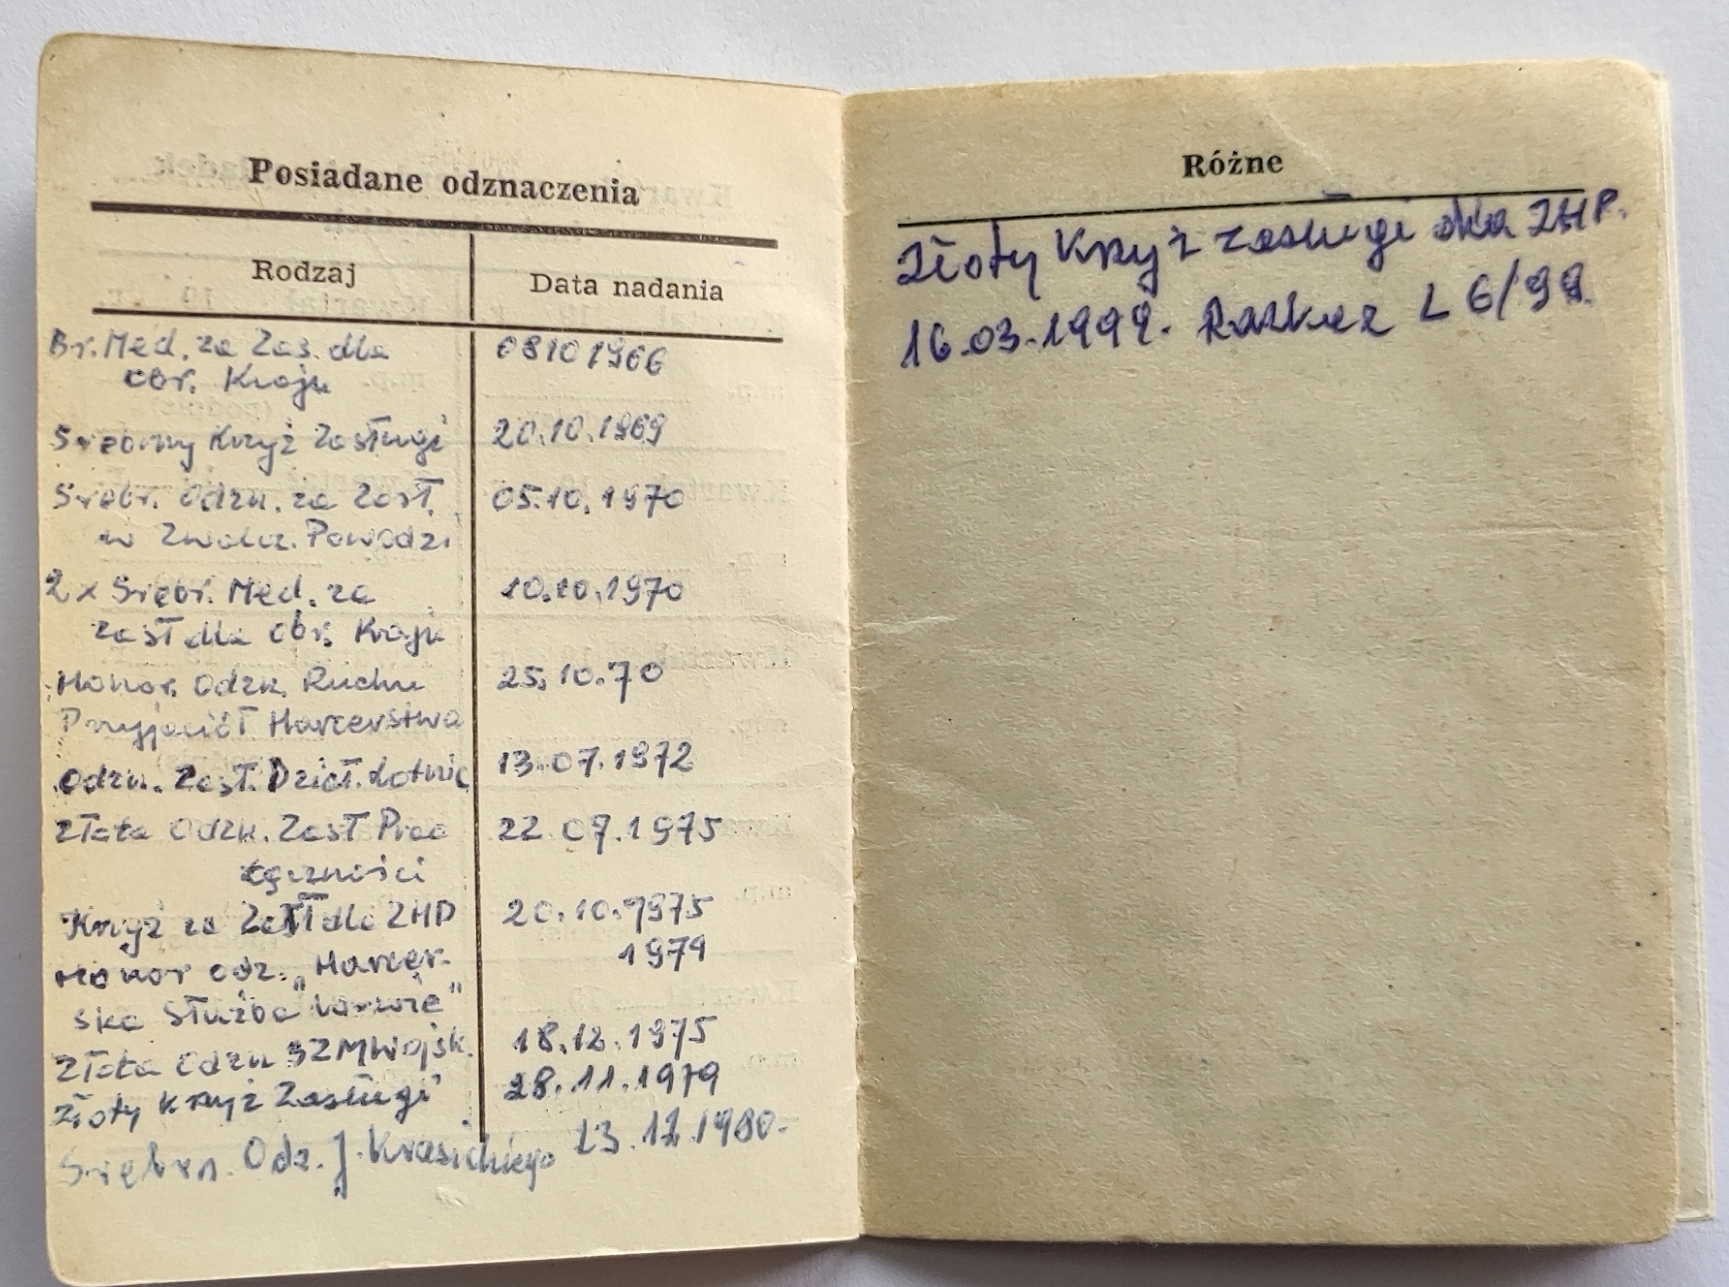 Posiadane odznaczenia
Rodzaj Data nadania
Br. Med. za Zas. dla 08 10 1966
obr. Kraju
Srebrny Krzyż Zasługi 20.10.1969
Srebr. Odzn. za Zasł. 05.10.1970
w Zwalcz. Powodzi
2 x Srebr. Med. za 10.10.1970
zasł dla Obr. Kraju
Honor. Odzn. Ruchu 25.10.70
Przyjaciół Harcerstwa
Odzn. Zasł. Dział. Lotnic 13.07.1972
Złota Odzn. Zasł Prac 22.07.1975
Łączności
Krzyż za Zasł dla ZHP 20.10.1975
Honor odz. „Harcer- 1979
ska Służba
Złota Odzn SZMWojsk. 18.12.1975
Złoty Krzyż Zasługi 28.11.1979
Srebrn. Odz. J. Krasickiego 13.12.1980.-
Różne
Złoty Krzyż zasługi dla ZHP.
16.03.1999. Rozkaz L 6/99.